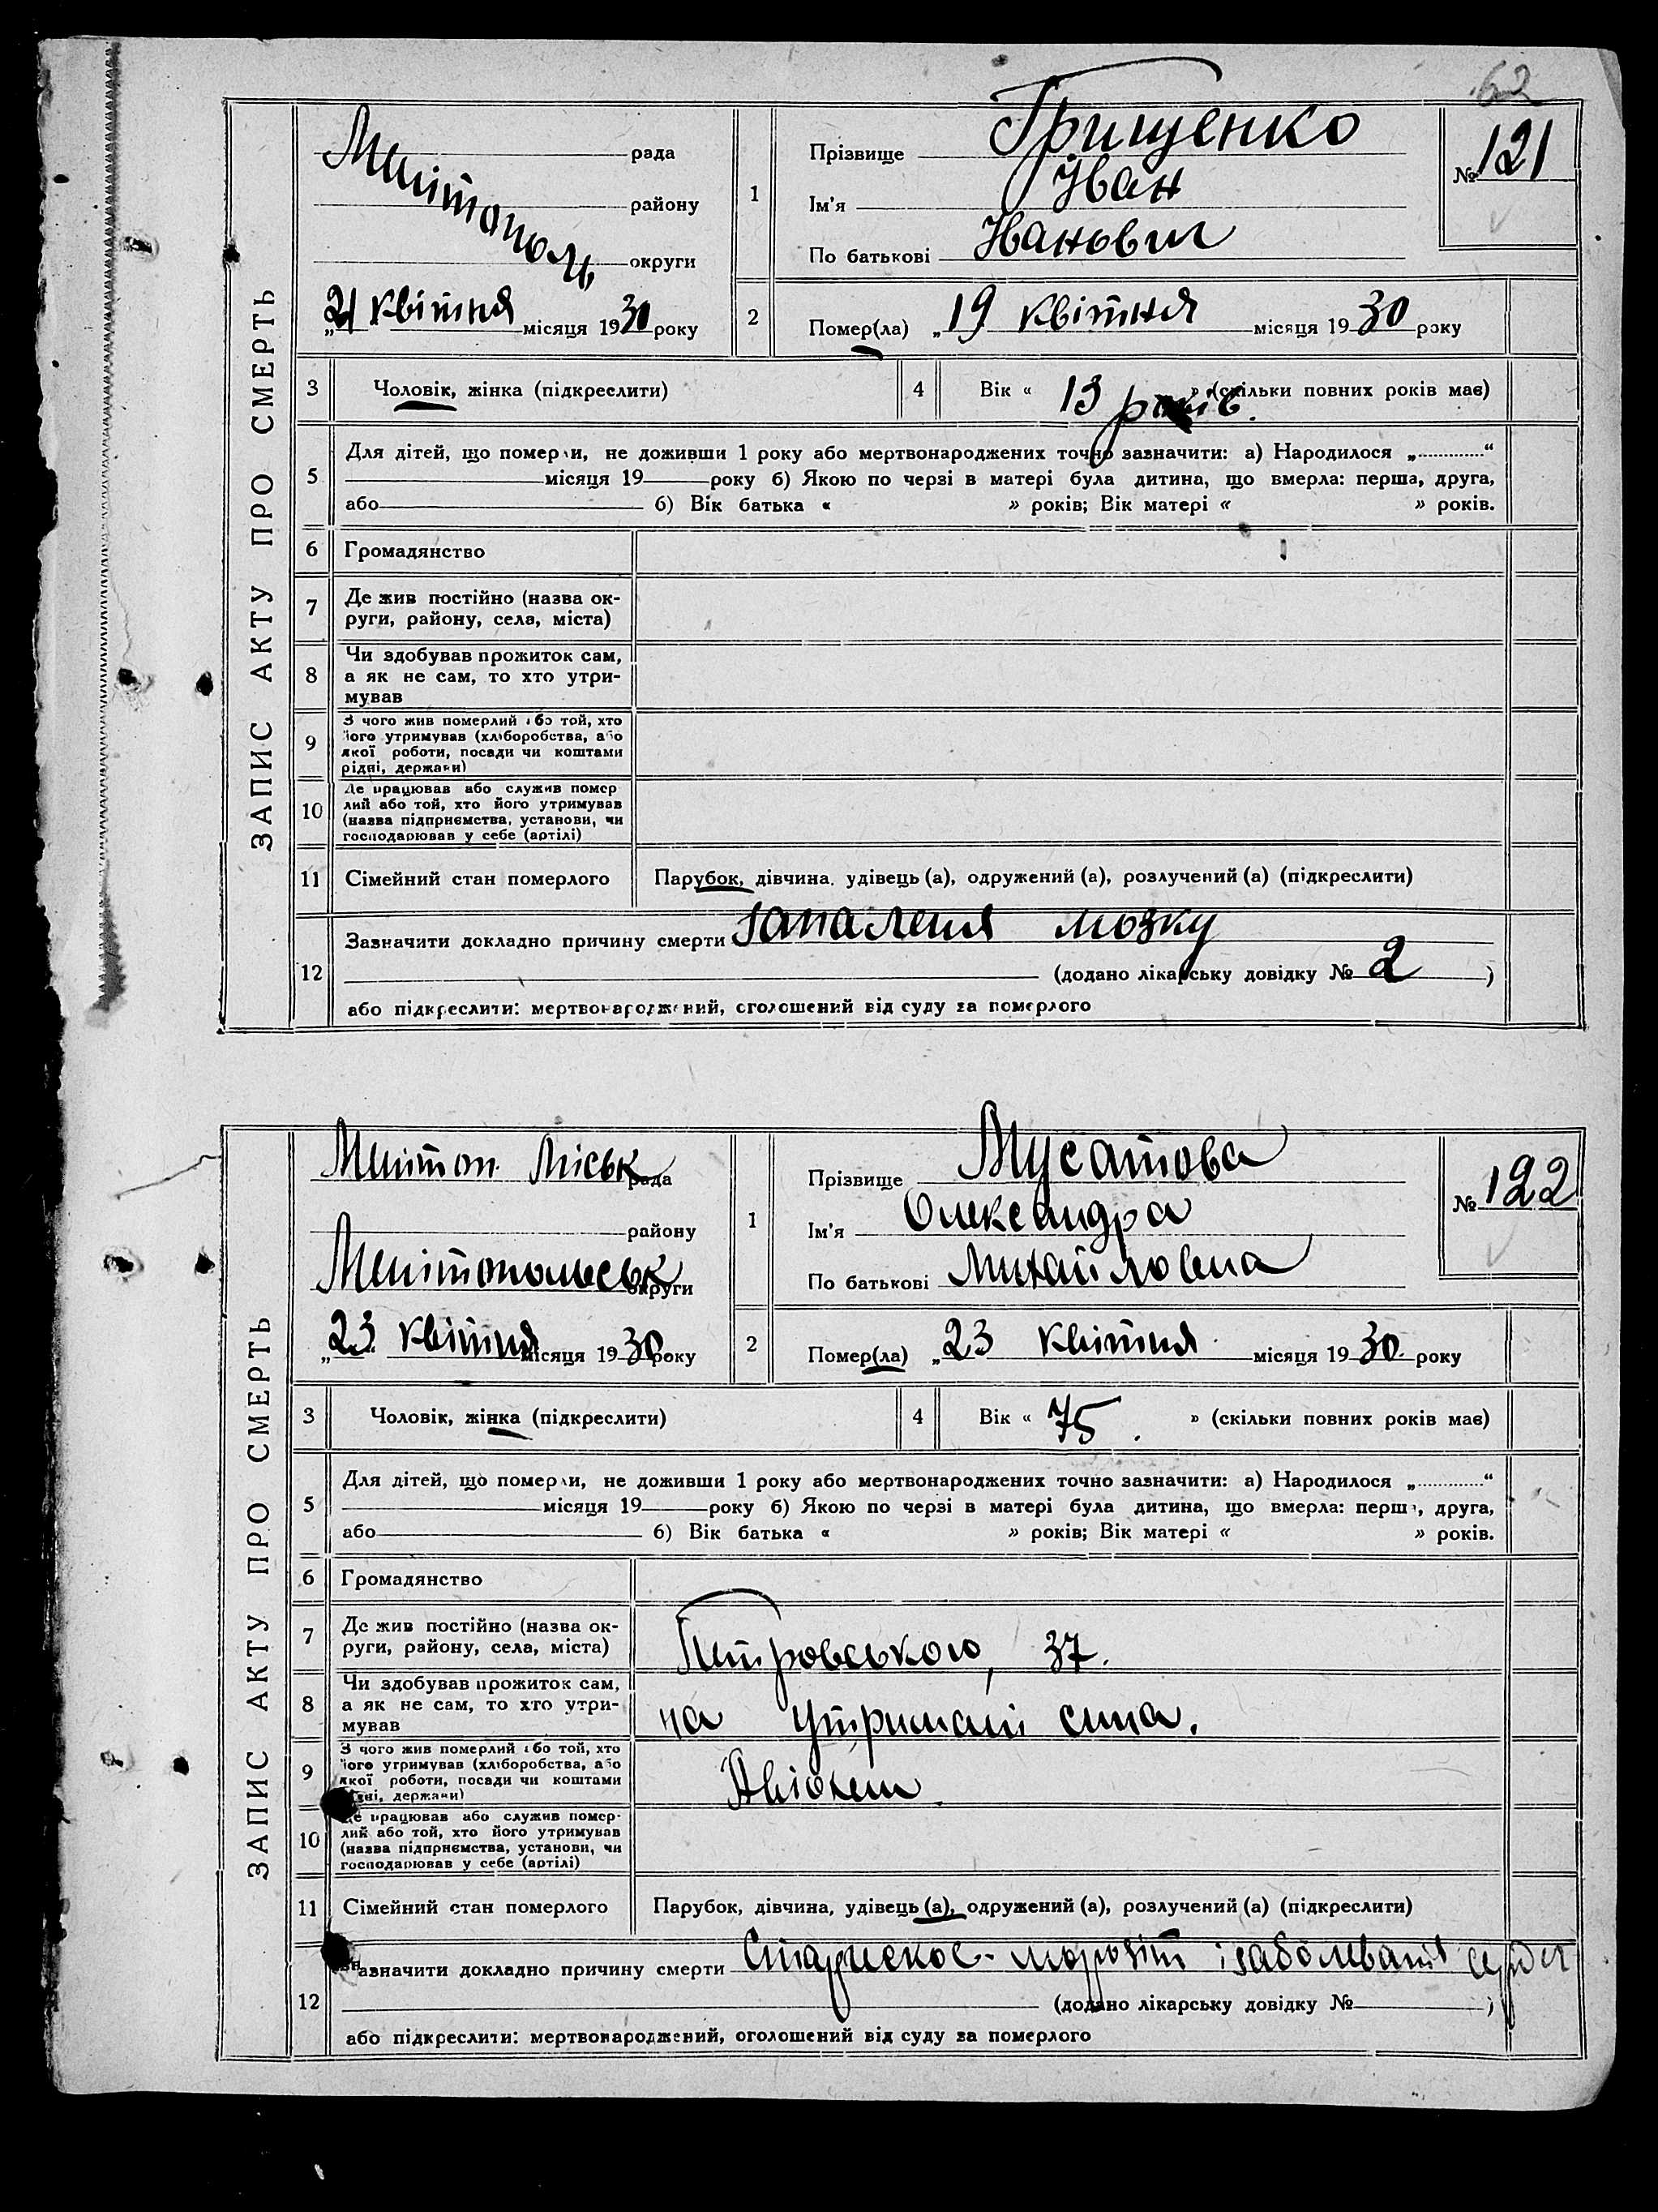 62
ЗАПИС АКТУ ПРО СМЕРТЬ
Мелітополь
рада
району
округи
„21 квітня місяця 1930 року
1
Прізвище Грищенко
Ім'я Іван
По батькові Іванович
№ 121
2
Помер(ла) „19 квітня місяця 1930 року
3
Чоловік, жінка (підкреслити)
4
Вік « 13 років » (скільки повних років має)
5
Для дітей, що померли, не доживши 1 року або мертвонароджених точно зазначити: а) Народилося „ “
місяця 19 року б) Якою по черзі в матері була дитина, що вмерла: перша, друга,
або б) Вік батька « » років; Вік матері « » років.
6
Громадянство
7
Де жив постійно (назва ок-
руги, району, села, міста)
8
Чи здобував прожиток сам,
а як не сам, то хто утри-
мував
9
З чого жив померлий або той, хто
його утримував (хліборобства, або
якої роботи, посади чи коштами
рідні, держави)
10
Де працював або служив помер
лий або той, хто його утримував
(назва підприємства, установи, чи
господарював у себе (артілі)
11
Сімейний стан померлого
Парубок, дівчина, удівець (а), одружений (а), розлучений (а) (підкреслити)
12
Зазначити докладно причину смерти запаленя мозку
(додано лікарську довідку № 2 )
або підкреслити: мертвонароджений, оголошений від суду за померлого
ЗАПИС АКТУ ПРО СМЕРТЬ
Мелітоп. Міськ рада
району
Мелітопольськ округи
„23 квітня місяця 1930 року
1
Прізвище Мусатова
Ім'я Олександра
По батькові Михайловна
№ 122
2
Помер(ла) „23 квітня місяця 1930. року
3
Чоловік, жінка (підкреслити)
4
Вік « 75. » (скільки повних років має)
5
Для дітей, що померли, не доживши 1 року або мертвонароджених точно зазначити: а) Народилося „ “
місяця 19 року б) Якою по черзі в матері була дитина, що вмерла: перша, друга,
або б) Вік батька « » років; Вік матері « » років.
6
Громадянство
7
Де жив постійно (назва ок-
руги, району, села, міста)
Петровського, 37.
8
Чи здобував прожиток сам,
а як не сам, то хто утри-
мував
на утримані сина.
9
З чого жив померлий або той, хто
його утримував (хліборобства, або
якої роботи, посади чи коштами
рідні, держави)
10
Де працював або служив помер-
лий або той, хто його утримував
(назва підприємства, установи, чи
господарював у себе (артілі)
11
Сімейний стан померлого
Парубок, дівчина, удівець (а), одружений (а), розлучений (а) (підкреслити)
12
Зазначити докладно причину смерти Старческое і заболеваня
(додано лікарську довідку № )
або підкреслити: мертвонароджений, оголошений від суду за померлого